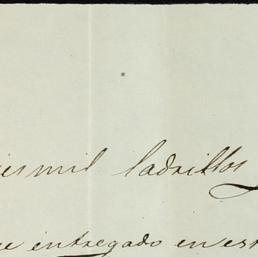 mil ladrillos
entregado en